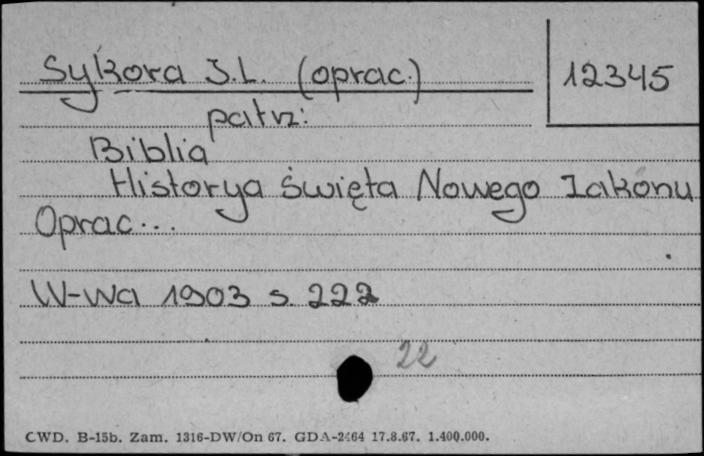 Sykora J.L. (oprac.)
12345
patrz:
Biblia
Historya święta Nowego Zakonu
Oprac...
W-wa 1903 s. 222
22
CWD. B-15b. Zam. 1316-DW/On 67. GDA-2464 17.8.67. 1.400.000.